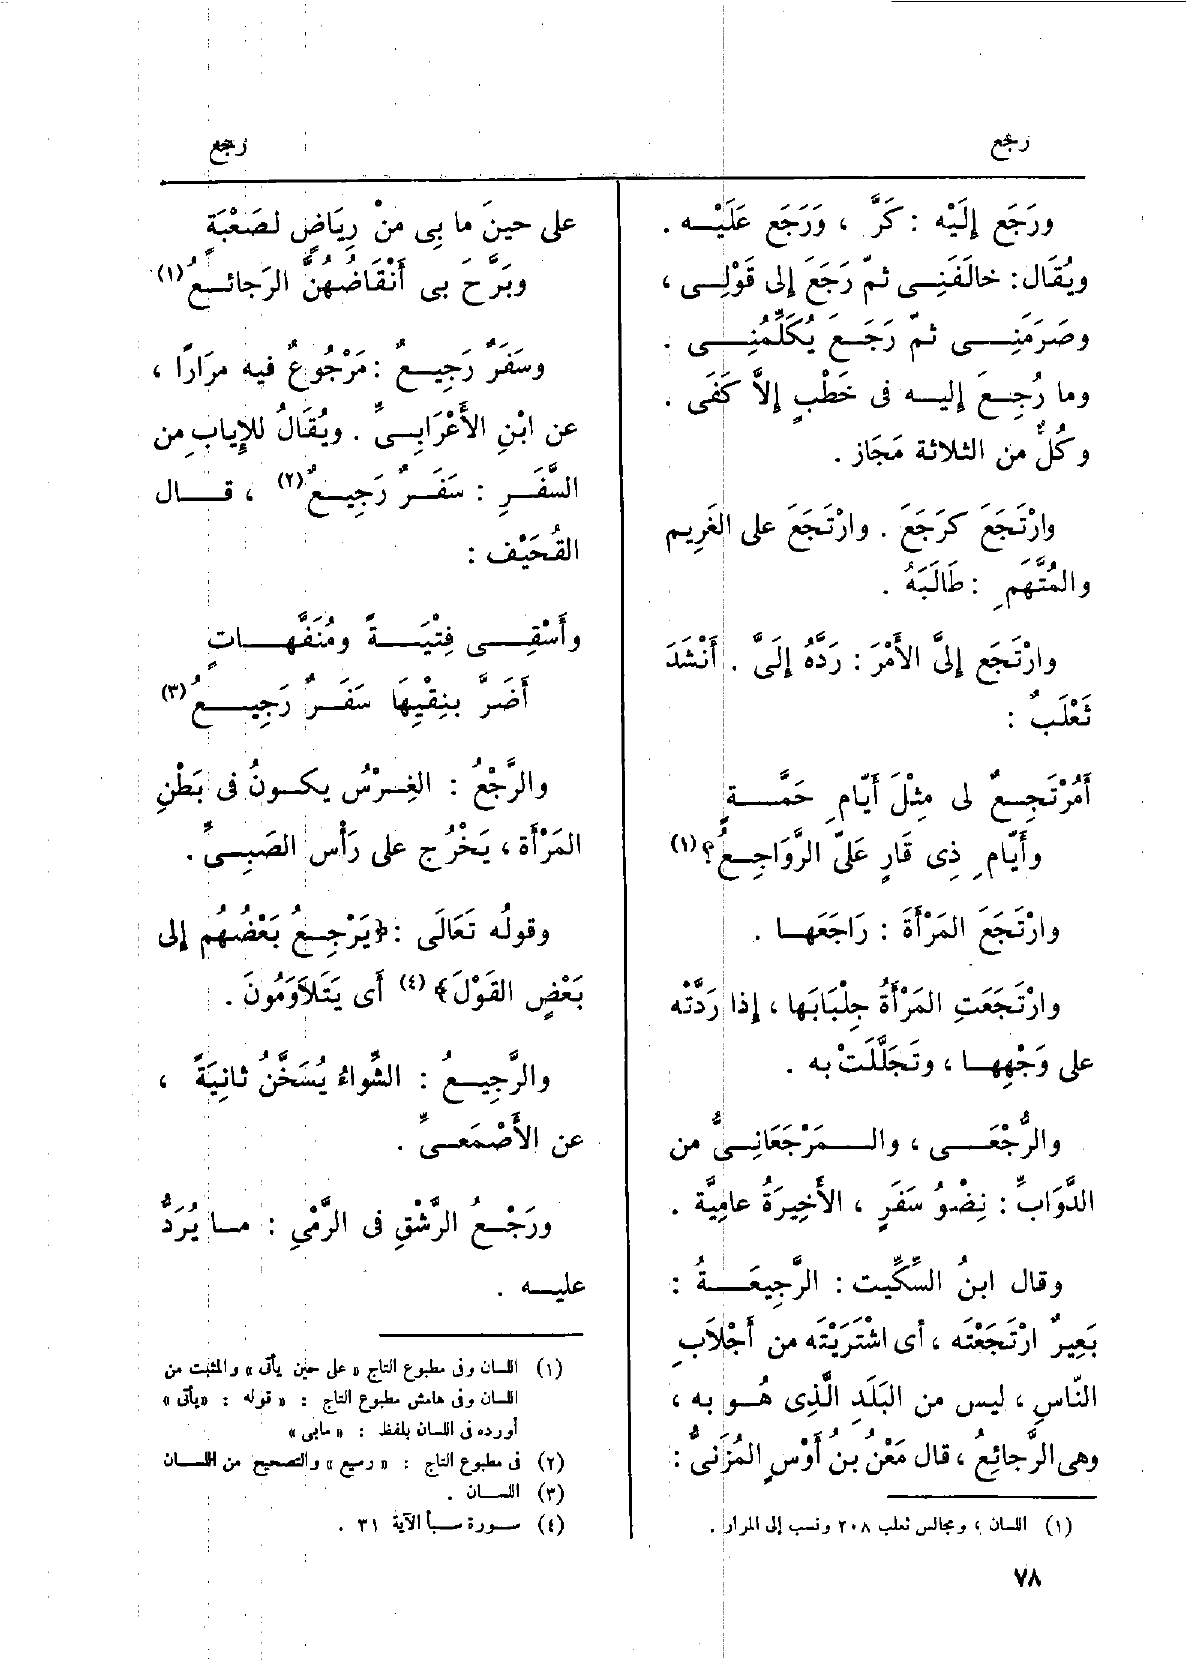 رجع
رجع
ورَجَع إِلَيْه : كَرَّ ، وَرَجَع عَلَيْـه .
ويُقَال: خالَفَنِـى ثمّ رَجَعَ إلى قَوْلِـى ،
وصَرَمَنِـى ثمّ رَجَـعَ يُكَلِّمُنِـى .
وما رُجِـعَ إِليـه فى خَطْبٍ إِلاَّ كَفَى .
وكُلٌّ من الثلاثة مَجَاز .
وارْتَجَعَ كرَجَعَ . وارْتَجَعَ على الغَرِيم
والمُتَّهَمِ : طَالَبَهُ .
وارْتَجَع إِلىَّ الأَمْرَ : رَدَّهُ إِلَىَّ . أَنْشَدَ
ثَعْلَبٌ :
أَمُرْتَجِـعٌ لى مِثْلَ أَيّامِ حَمَّـةٍ
وأَيّامِ ذِى قَارٍ عَلىَّ الرَّوَاجِـعُ؟(١)
وارْتَجَعَ المَرْأَةَ : رَاجَعَهـا .
وارْتَجَعَتِ المَرْأَةُ جِلْبَابَها ، إِذا رَدَّتْه
على وَجْهِهـا ، وتَجَلَّلَتْ به .
والرُّجْعَـى ، والـمَرْجَعَانِـىُّ من
الدَّوَابِّ : نِضْوُ سَفَرٍ ، الأَخِيرَةُ عامِيَّة .
وقال ابنُ السِّكِّيت : الرَّجِيعَـةُ :
بَعِيرٌ ارْتَجَعْتَه ، أى اشْتَرَيْتَه من أَجْلاَبِ
النّاسِ ، ليس من البَلَدِ الَّذِى هُـو به ،
وهى الرَّجائِعُ ، قال مَعْنُ بنُ أَوْسٍ المُزَنىُّ :
(١) اللسان ، ومجالس ثعلب ٢٠٨ ونسب إلى المرار .
على حينَ ما بِى مِنْ رِيَاضٍ لصَعْبَةٍ
وبَرَّحَ بى أَنْقَاضُهُنَّ الرَجائـعُ(١)
وسَفَرٌ رَجِيـعٌ : مَرْجُوعٌ فيه مِرَارًا ،
عن ابْنِ الأَعْرَابِـىِّ . ويُقَالُ للإِيابِ من
السَّفَـرِ : سَفَـرٌ رَجِيـعٌ(٢) ، قـال
القُحَيْف :
وأَسْقِـى فِتْيَـةً ومُنَفَّهـاتٍ
أَضَرَّ بنِقْيِهَا سَفَـرٌ رَجِيـعُ(٣)
والرَّجْعُ : الغِـرْسُ يكـونُ فى بَطْنِ
المَرْأَة ، يَخْرُج على رَأْس الصَبِـىِّ .
وقولُه تَعَالَى : ﴿يَرْجِـعُ بَعْضُهُم إلى
بَعْضٍ القَوْلَ﴾ (٤) أى يَتَلاَوَمُونَ .
والرَّجِيـعُ : الشِّواءُ يُسَخَّنُ ثانِيَةً ،
عن الأَصْمَعـىِّ .
ورَجْـعُ الرَّشْقِ فى الرَّمْىِ : مـا يُرَدُّ
عليـه .
(١) اللسان وفى مطبوع التاج « على حين يأتى » والمثبت من
اللسان وفى هامش مطبوع التاج : « قوله : «يأتى»
أورده فى اللسان بلفظ : « مابى »
(٢) فى مطبوع التاج : « رسيع » والتصحيح من اللسان
(٣) اللسان .
(٤) سورة سبأ الآية ٣١ .
٧٨